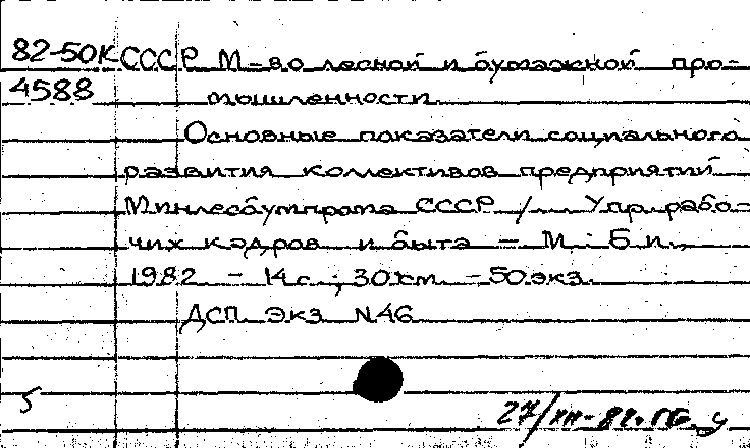 82-50К СССР М-во лесной и бумажной про-
4588 мышленности.
Основные показатели социального
развития коллективов предприятий
Минлесбумпрома СССР / ... Упр. рабо-
чих кадров и быта - М.: Б.и.,
1982 - 14 с.; 30 см. - 50 экз.
ДСП. Экз. N46
5